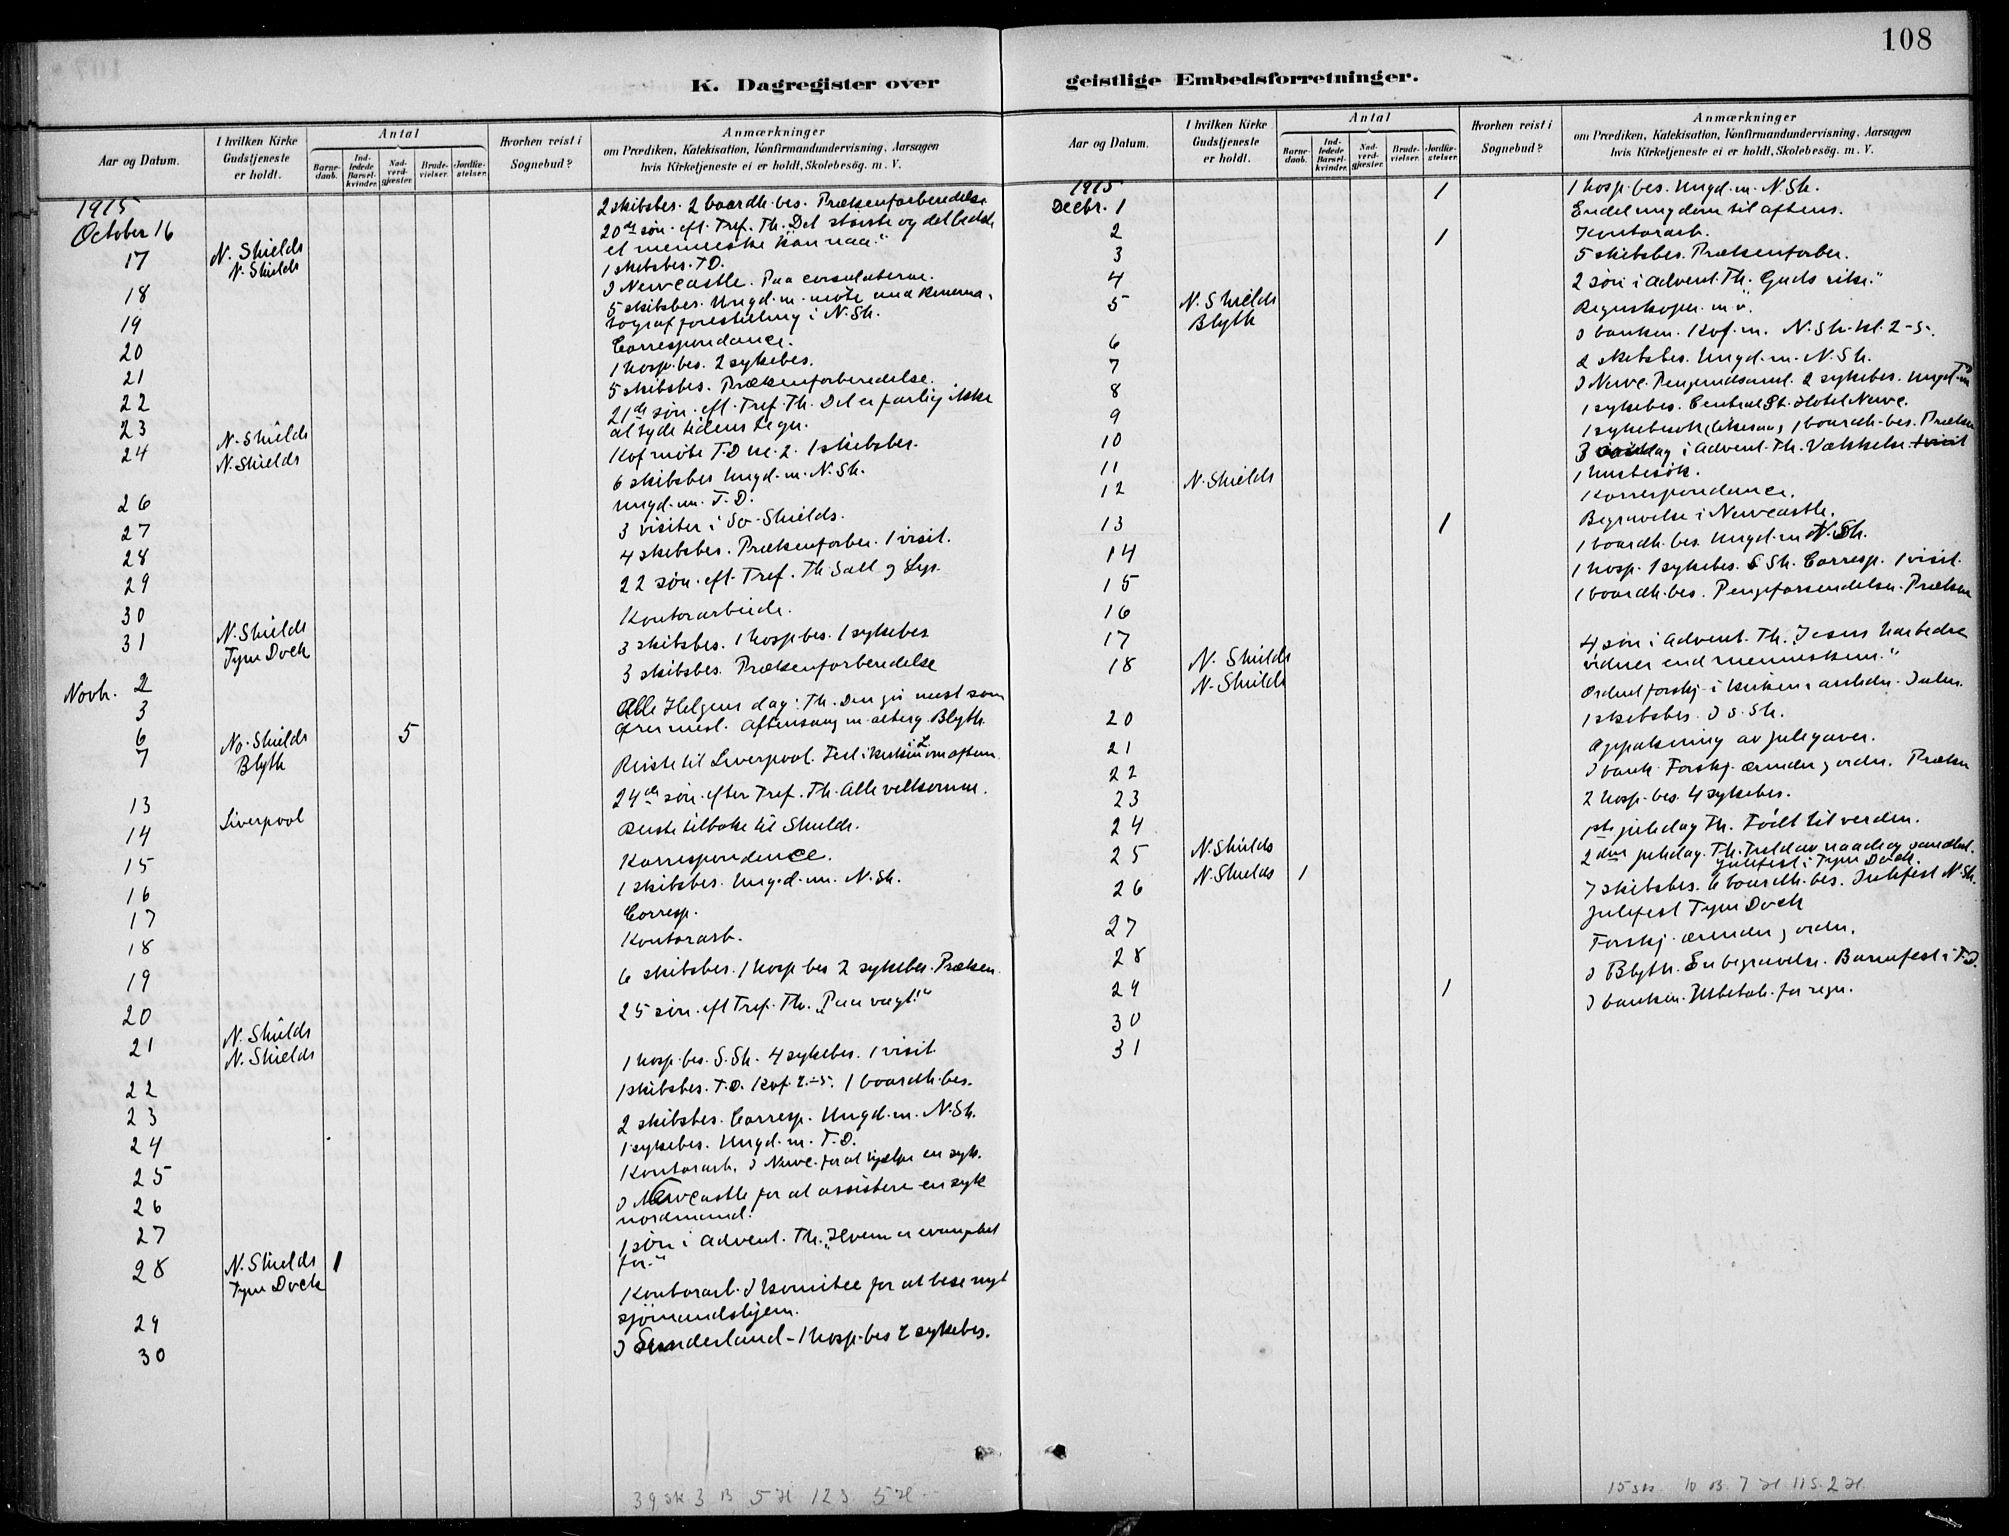 108
K. Dagregister over
geistlige Embedsforretninger.
Aar og Datum.
I hvilken Kirke Gudstjeneste er holdt.
Antal
Barnedaab.
Indledede Barselkvinder.
Nadverdgjæster.
Brudevielser.
Jordfæstelser.
Hvorhen reist i Sognebud?
Anmærkninger
om Prædiken, Katekisation, Konfirmandundervisning, Aarsagen
hvis Kirketjeneste ei er holdt, Skolebesög. m. V.
1915
October 16
2 skibsbes. 2 boardh. bes. Prækenforberedelse
17 N. Shields
N. Shields
20de søn. eft. Tref. Th. Det største og det bedste
et menneske kan naa."
18
1 skibsbes. T.D.
19
I Newcastle. Paa consulaterne.
20
5 skibsbes. Ungd. m. møte med kinema-
tograf forestilling i N. Sh.
21
Correspondance.
22
1 hosp. bes. 2 sykebes.
23
5 skibsbes. Prækenforberedelse.
24 N. Shields
N. Shields
21de søn. eft. Tref. Th. Det er farlig ikke
at tyde tidens tegn.
Kof møte T.D. kl. 2. 1 skibsbes.
26
6 skibsbes Ungd. m. N. Sh.
27
Ungd. m. T.D.
28
3 visiter i So. Shields.
29
4 skibsbes. Prækenforber. 1 visit.
30
31 N. Shields
Tyne Dock
22 søn. eft. Tref. Th. Salt og Lys.
Kontorarbeide.
Novb. 2
3 skibsbes. 1 hosp. bes. 1 sykebes
3
3 skibsbes. Prækenforberedelse
6
7 No. Shields 5
Blyth
Alle Helgens dag: Th. Den gir mest som
ofrer mest. Aftensang m. alterg. Blyth.
13
Reiste til Liverpool. Fest i kirken i L. om aftenen
14 Liverpool
24de søn. efter Tref. Th. Alle velkomne.
15
Reiste tilbake til Shields.
16
Korrespondence.
17
1 skibsbes. Ungd. m. N. Sh.
18
Corresp.
19
Kontorarb.
20
6 skibsbes. 1 hosp. bes 2 sykebes. Præken.
21 N. Shields
N. Shields
25 søn. eft Tref. Th. „Paa vagt!"
22
1 hosp. bes. S. Sh. 4 sykebes. 1 visit.
23
1 skibsbes. T.D. Kof. 2-5. 1 boardh. bes.
24
2 skibsbes. Corresp. Ungd. m. N. Sh.
25
1 sykebes. Ungd. m. T.D.
26
Kontorarb. I Newc. for at hjælpe en syk.
27
I Newcastle for at assistere en syk
nordmand.
28 N. Shields 1
Tyne Dock
1 søn i Advent. Th. „Hvem er evangeliet
for."
29
Kontorarb. I komitee for at bese nyt
sjömandshjem.
30
I Sunderland - 1 hosp. bes 2 sykebes.
39 sk 3 B 5 H 12 S. 5 H
Aar og Datum.
I hvilken Kirke Gudstjeneste er holdt.
Antal
Barnedaab.
Indledede Barselkvinder.
Nadverdgjæster.
Brudevielser.
Jordfæstelser.
Hvorhen reist i Sognebud?
Anmærkninger
om Prædiken, Katekisation, Konfirmandundervisning, Aarsagen
hvis Kirketjeneste ei er holdt, Skolebesög. m. V.
1915
Decbr. 1 1
1 hosp. bes. Ungd. m. N. Sh.
2
Endel ungdom til aftens.
3 1
Kontorarb.
4
5 skibsbes. Prækenforber.
5 N. Shields
Blyth
2 søn i advent. Th. Guds rike."
6
Regnskaper m.v.
7
I banken. Kof. m. N. Sh. kl. 2-5.
8
2 skibsbes. Ungd. m. N. Sh.
9
I Newc. Pengeudsend. 2 sykebes. Ungd. m T.D.
10
1 sykebes. Central St. Hotel Newc.
11
1 boardh. bes. Præken
12 N. Shields
3 søndag i Advent. Th. Vækkelse.
1 husbesøk.
13 1
Korrespondance.
14
Begravelse i Newcastle.
15
1 boardh. bes. Ungd. m N. Sh.
16
1 hosp. 1 sykebes. S Sh. Corresp. 1 visit.
17
1 boardh. bes. Pengeforsendelse. Præken
18 N. Shields
N. Shields
4 søn i Advent. Th. Jesus har bedre
vidner end menneskene."
20
Ordnet forskj. i kirken i anledn. Julen.
21
1 skibsbes. I S. Sh.
22
Oppakning av julegaver.
23
I bank. Forskj. ærender, ordn. Præken
24
2 hosp. bes. 4 sykebes.
25 N. Shields
1ste juledag Th. Født til verden.
26 N. Shields 1
2den juledag. Th. Fuld av naade og sandhet.
Julefest i Tyne Dock.
27
7 skibsbes. 6 boardh. bes. Julefest N. Sh.
28
Julefest Tyne Dock
29 1
Forskj. ærender, ordn.
30
I Blyth. En begravelse. Barnefest i T.D.
31
I banken. Utbetal. for regn.
15 sk. 10 B. 7 H 11 S. 2 H.